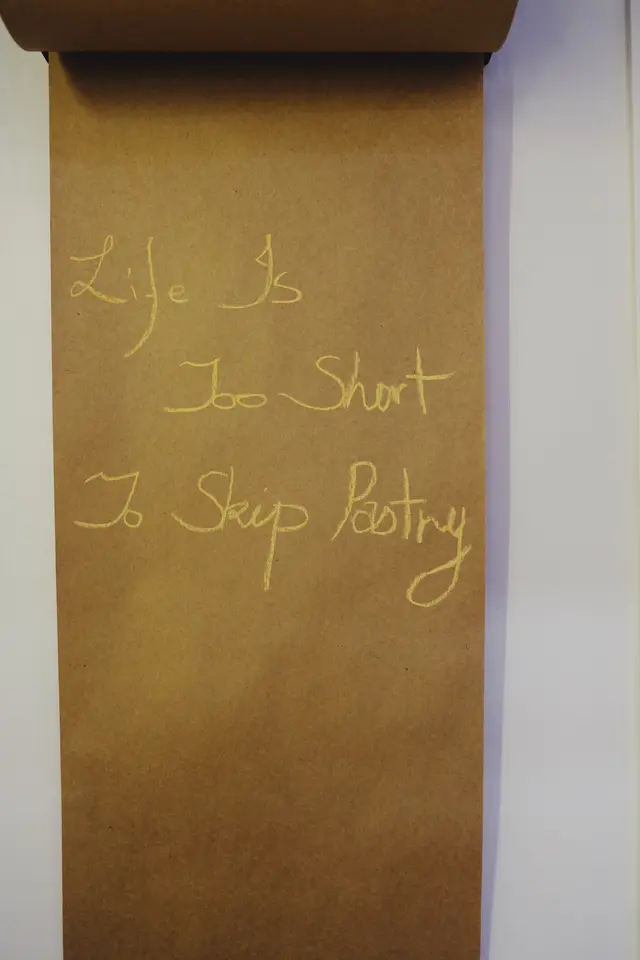 Life Is
Too Short
To Skip Pastry